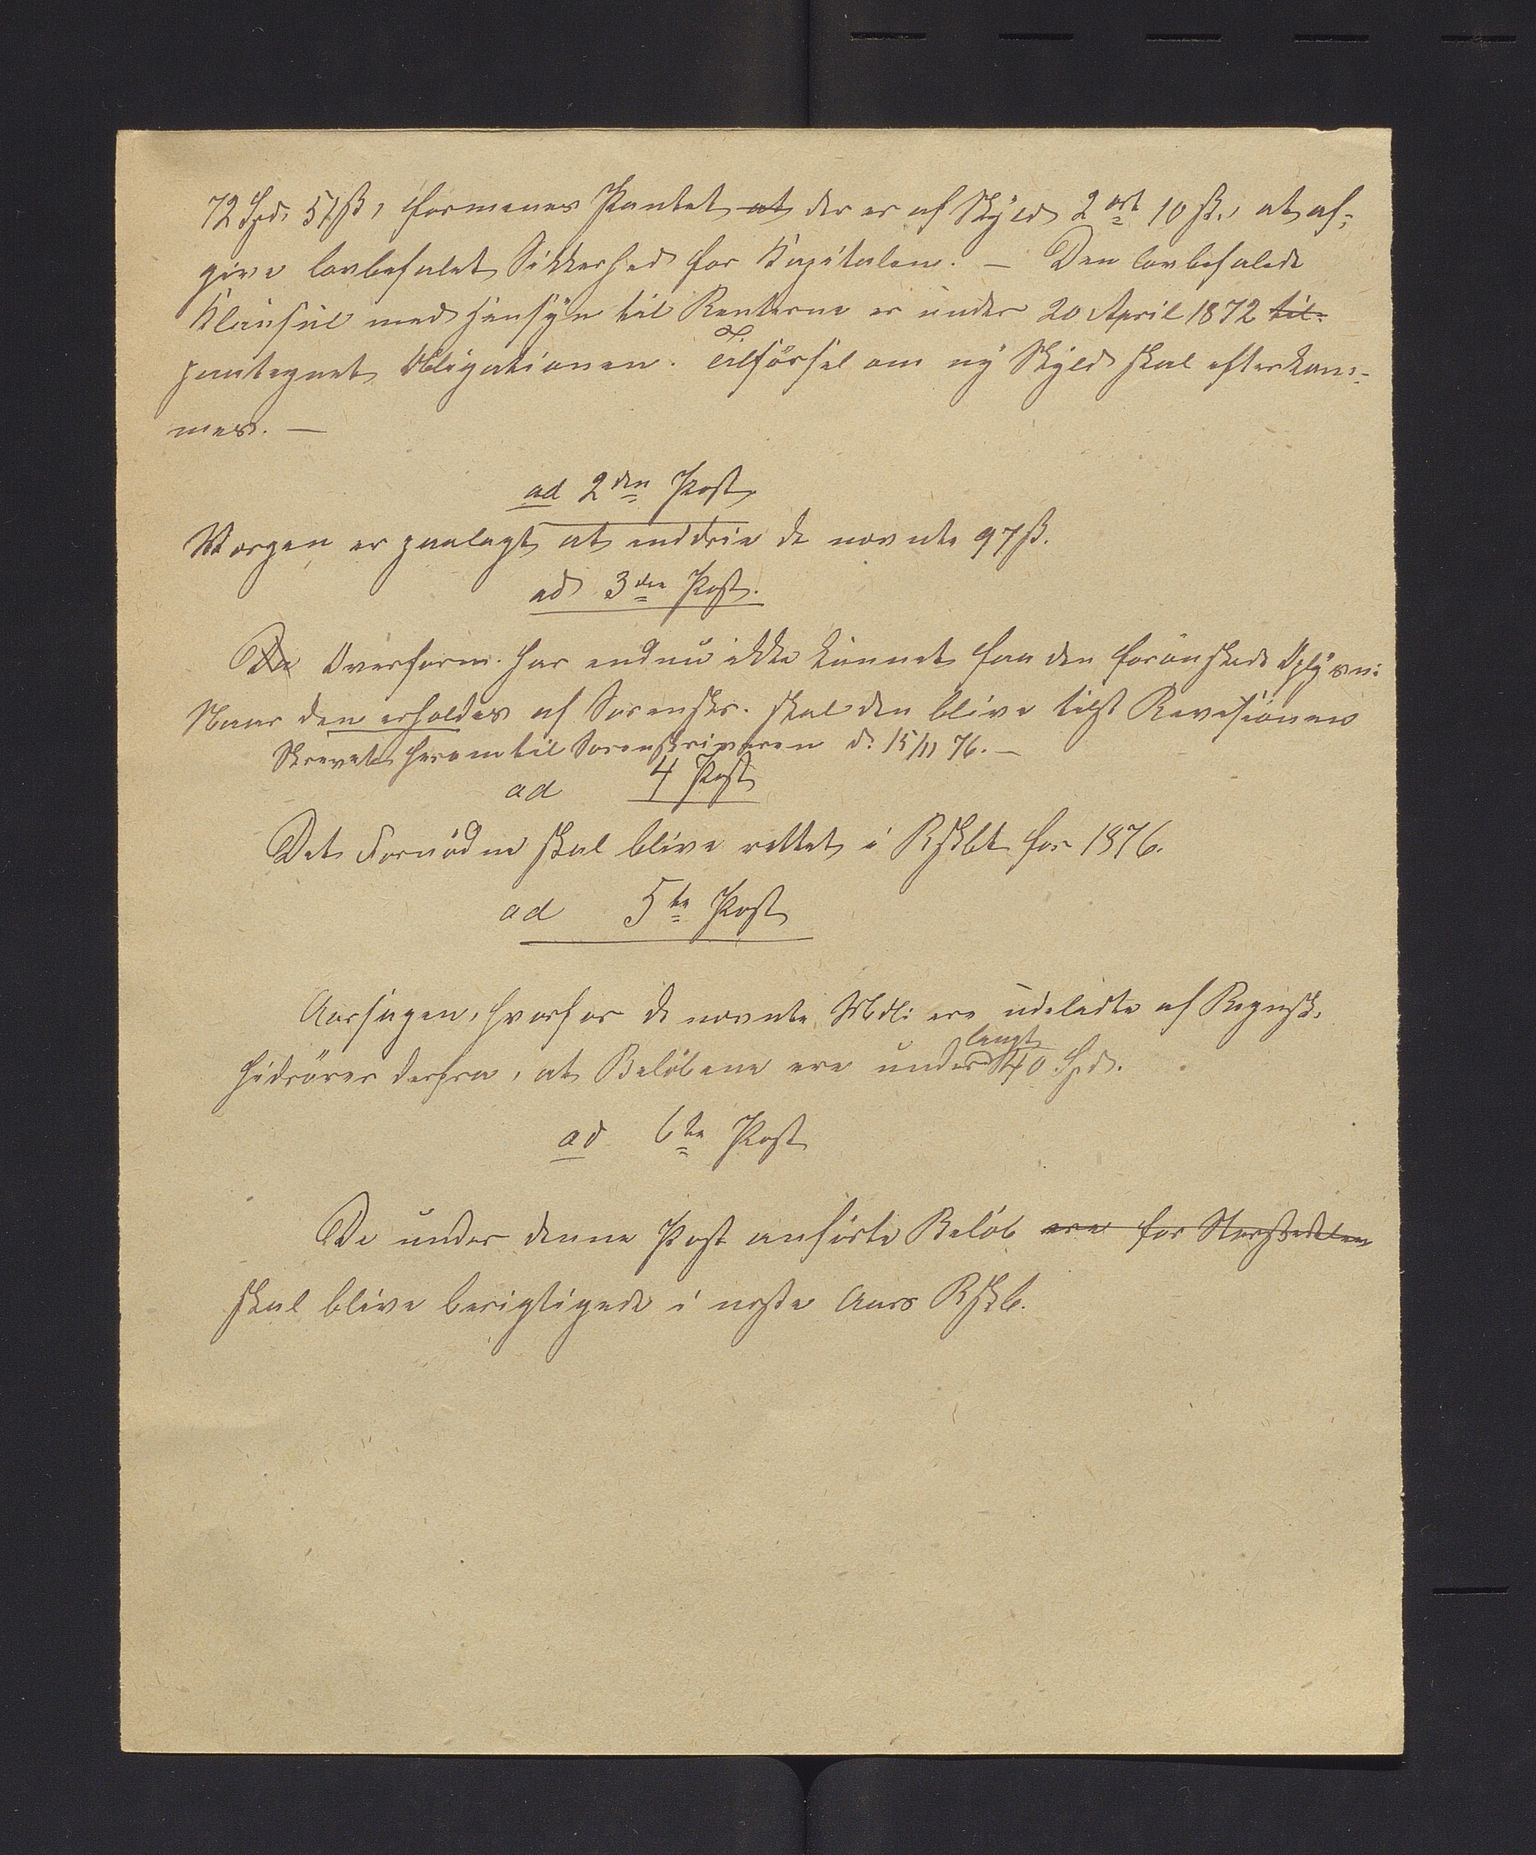 72 Spd. 51 ß, formenes Pantet at der er af Skyld 2 ort 10 ß., at af-
give lovbefalet Sikkerhed for Kapitalen. — Den lovbefalede
Klausul med Hensyn til Renterne er under 20 April 1872 til-
paategnet Obligationen. Tilførsel om ny Skyld skal efterkom-
mes. —
ad 2den Post
Værgen er paalagt at inddrive de nævnte 97 ß.
ad 3die Post.
De Overform. har endnu ikke kunnet faa den forønskede Oplysn:
Naar den erholdes af Sorenskr. skal den blive tilst Revisionen
Skrevet herom til Sorenskriveren d. 15/11 76. —
ad 4 Post
Det Fornødne skal blive rettet i Rskbt for 1876.
ad 5te Post
Aarsagen, hvorfor de nævnte Mdl: ere udeladte af Regnsk.
hidrører derfra, at Beløbene ere under langt 40 Spd.
ad 6te Post
De under denne Post anførte Beløb ere for Størstedelen
skal blive berigtigede i næste Aars Rskb.